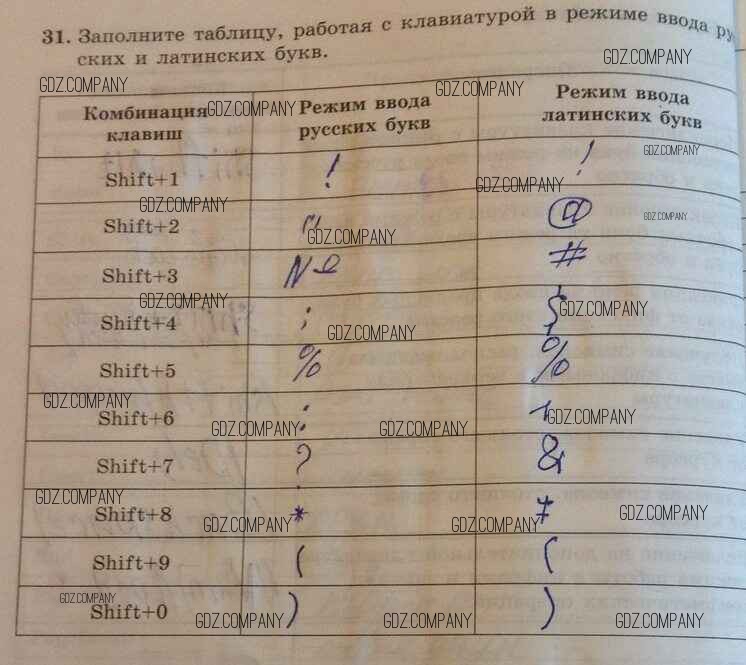 31. Заполните таблицу, работая с клавиатурой в режиме ввода ру
ских и латинских букв.
GDZ.COMPANY
GDZ.COMPANY
Комбинация клавиш GDZ.COMPANY Режим ввода русских букв GDZ.COMPANY Режим ввода латинских букв
Shift+1 ! ! GDZ.COMPANY
GDZ.COMPANY
GDZ.COMPANY
Shift+2 " @ GDZ.COMPANY
GDZ.COMPANY
Shift+3 № #
GDZ.COMPANY
GDZ.COMPANY
Shift+4 ;
GDZ.COMPANY
Shift+5 % %
GDZ.COMPANY
GDZ.COMPANY
Shift+6 :
GDZ.COMPANY GDZ.COMPANY
Shift+7 ? &
GDZ.COMPANY
Shift+8 * * GDZ.COMPANY
GDZ.COMPANY GDZ.COMPANY
Shift+9 ( (
GDZ.COMPANY
Shift+0 ) )
GDZ.COMPANY GDZ.COMPANY GDZ.COMPANY